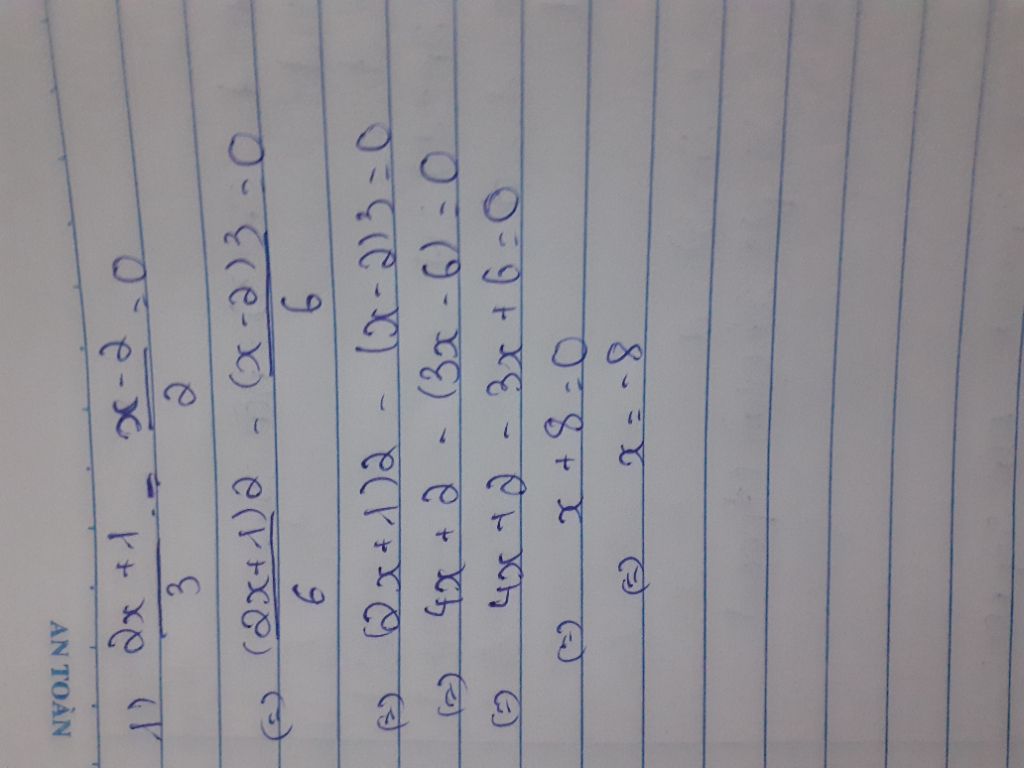 AN TOÀN
1) 2x + 1 / 3 - x - 2 / 2 = 0
(=) (2x + 1)2 / 6 - (x - 2)3 / 6 = 0
(=) (2x + 1)2 - (x - 2)3 = 0
(=) 4x + 2 - (3x - 6) = 0
(=) 4x + 2 - 3x + 6 = 0
(=) x + 8 = 0
(=) x = - 8